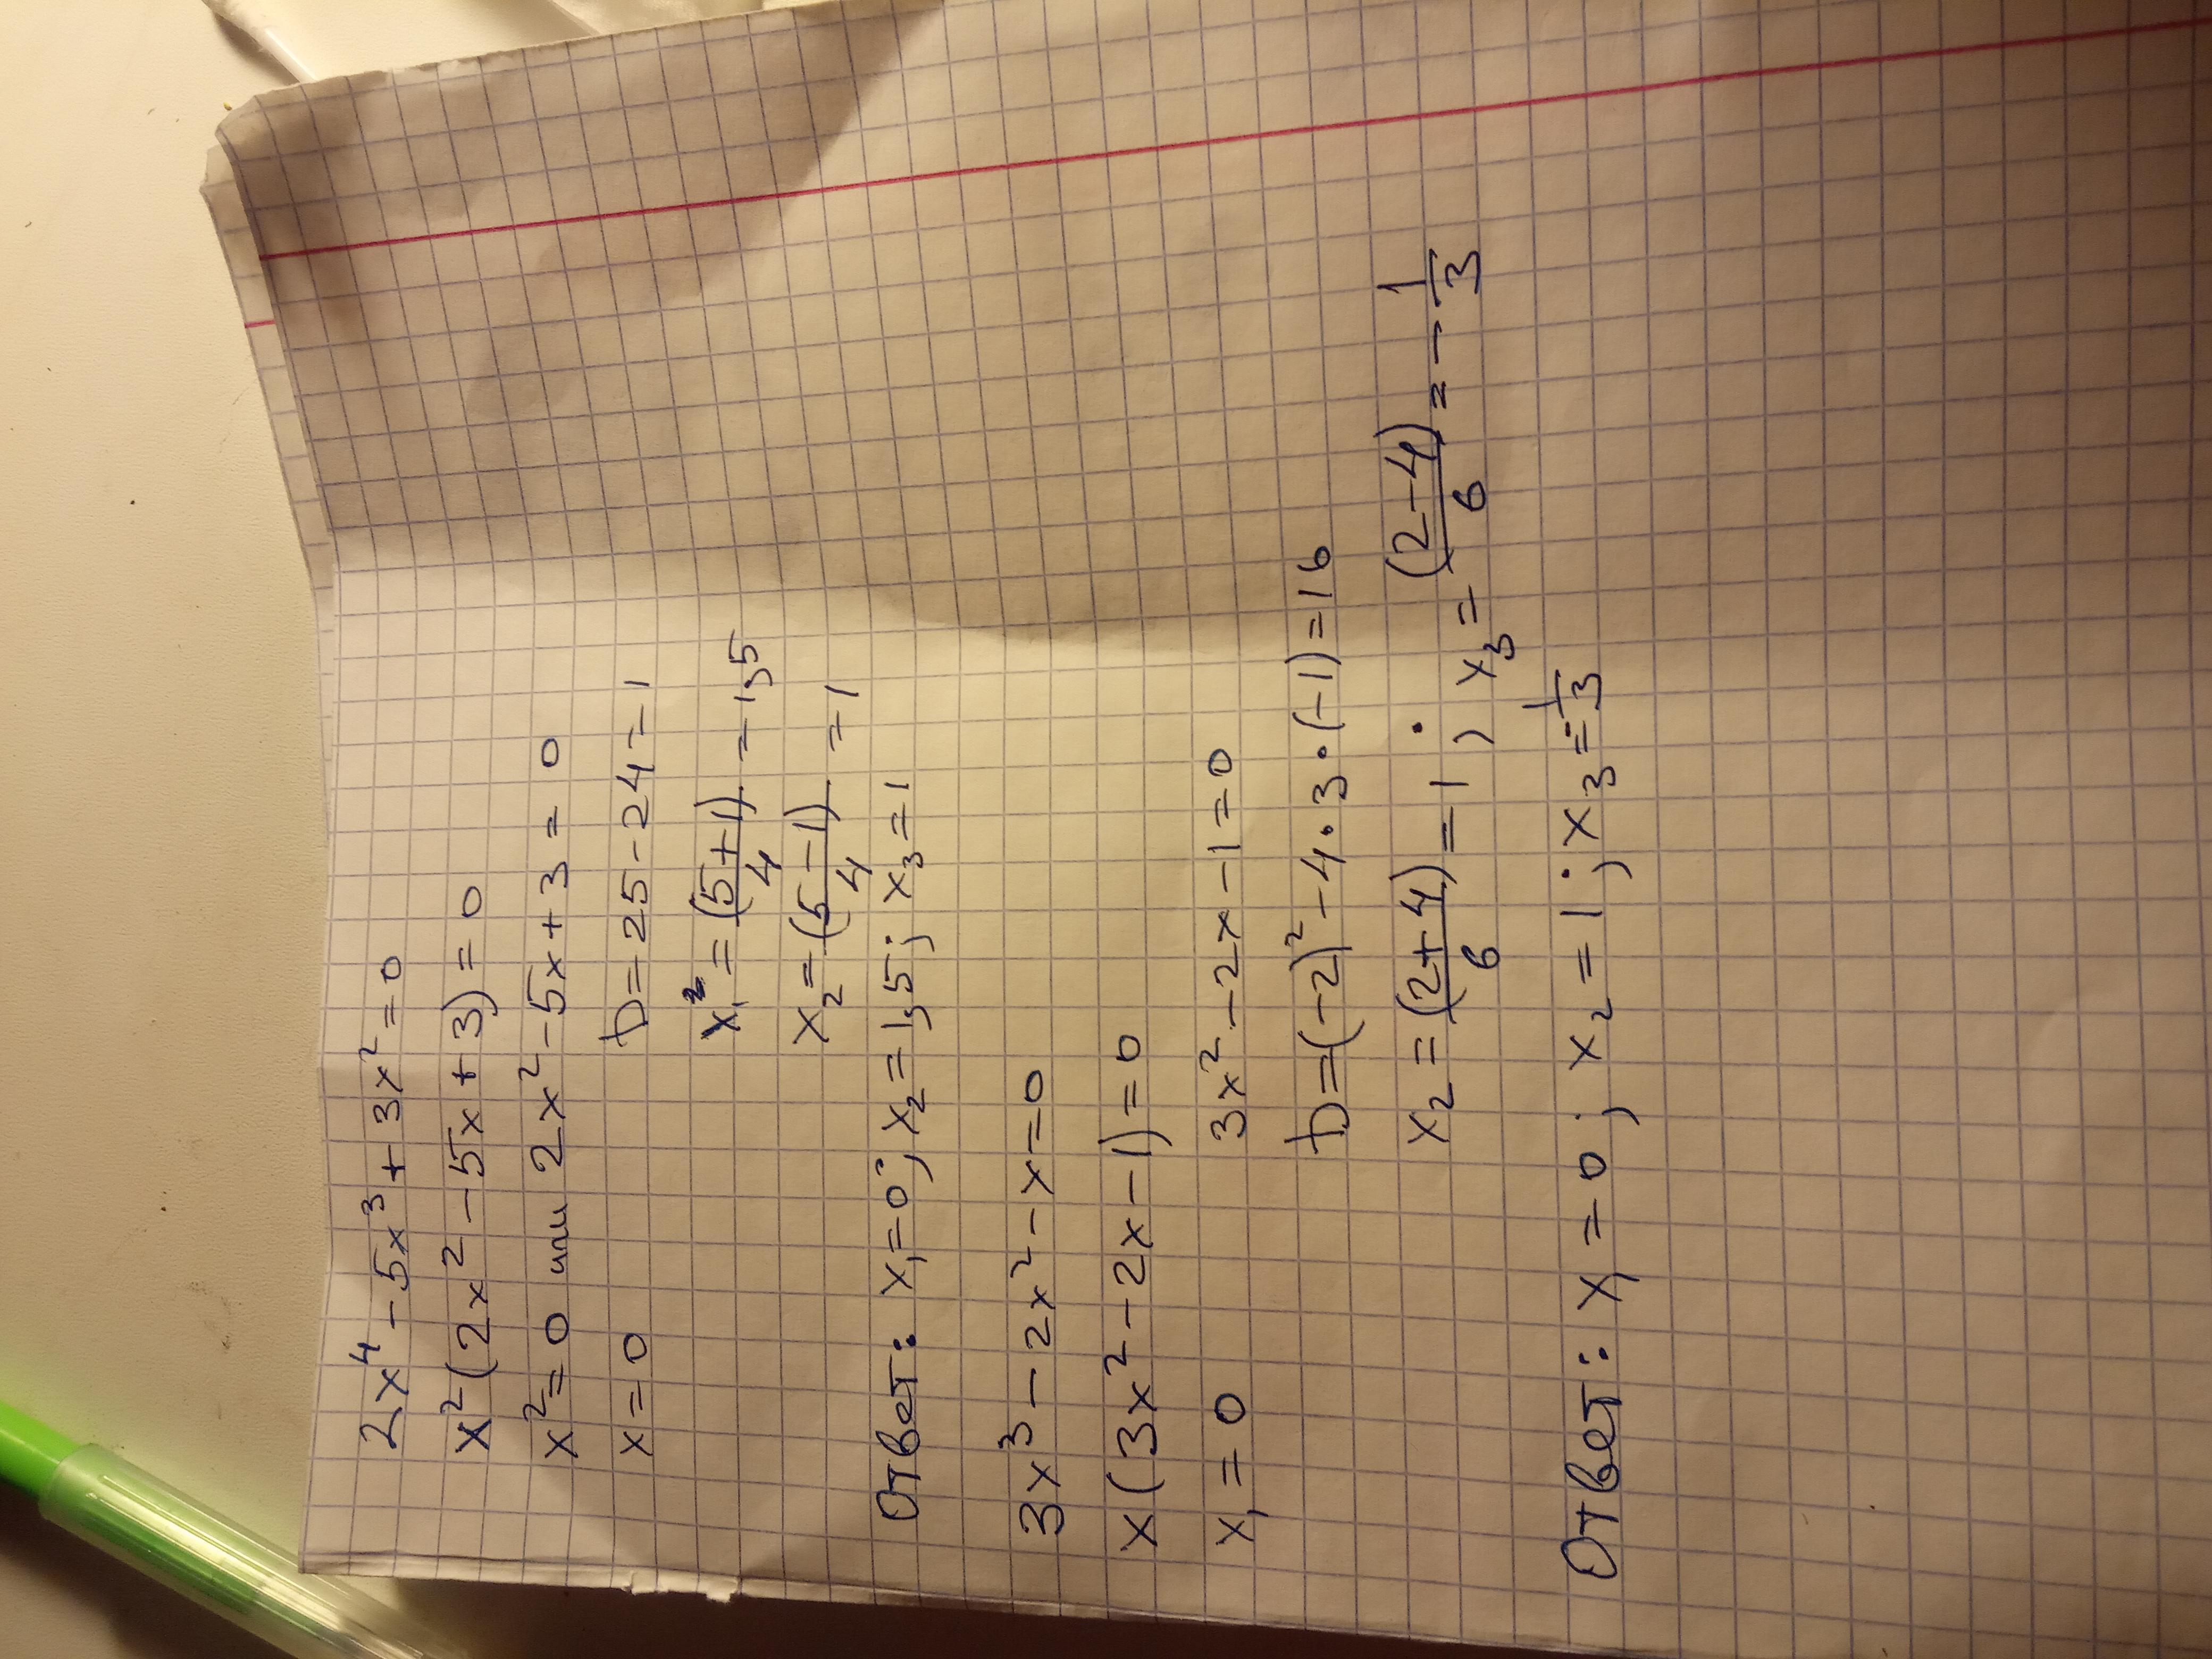 2x⁴ - 5x³ + 3x² = 0
x²(2x² - 5x + 3) = 0
x² = 0 или 2x² - 5x + 3 = 0
x = 0 D = 25 - 24 = 1
x₁ = (5+1)/4 = 1,5
x₂ = (5-1)/4 = 1
Ответ: x₁ = 0; x₂ = 1,5; x₃ = 1
3x³ - 2x² - x = 0
x(3x² - 2x - 1) = 0
x₁ = 0 3x² - 2x - 1 = 0
D = (-2)² - 4·3·(-1) = 16
x₂ = (2+4)/6 = 1; x₃ = (2-4)/6 = -1/3
Ответ: x₁ = 0; x₂ = 1; x₃ = -1/3